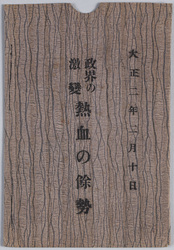 大正二年二月十日
政界の
激変
熱血の餘勢